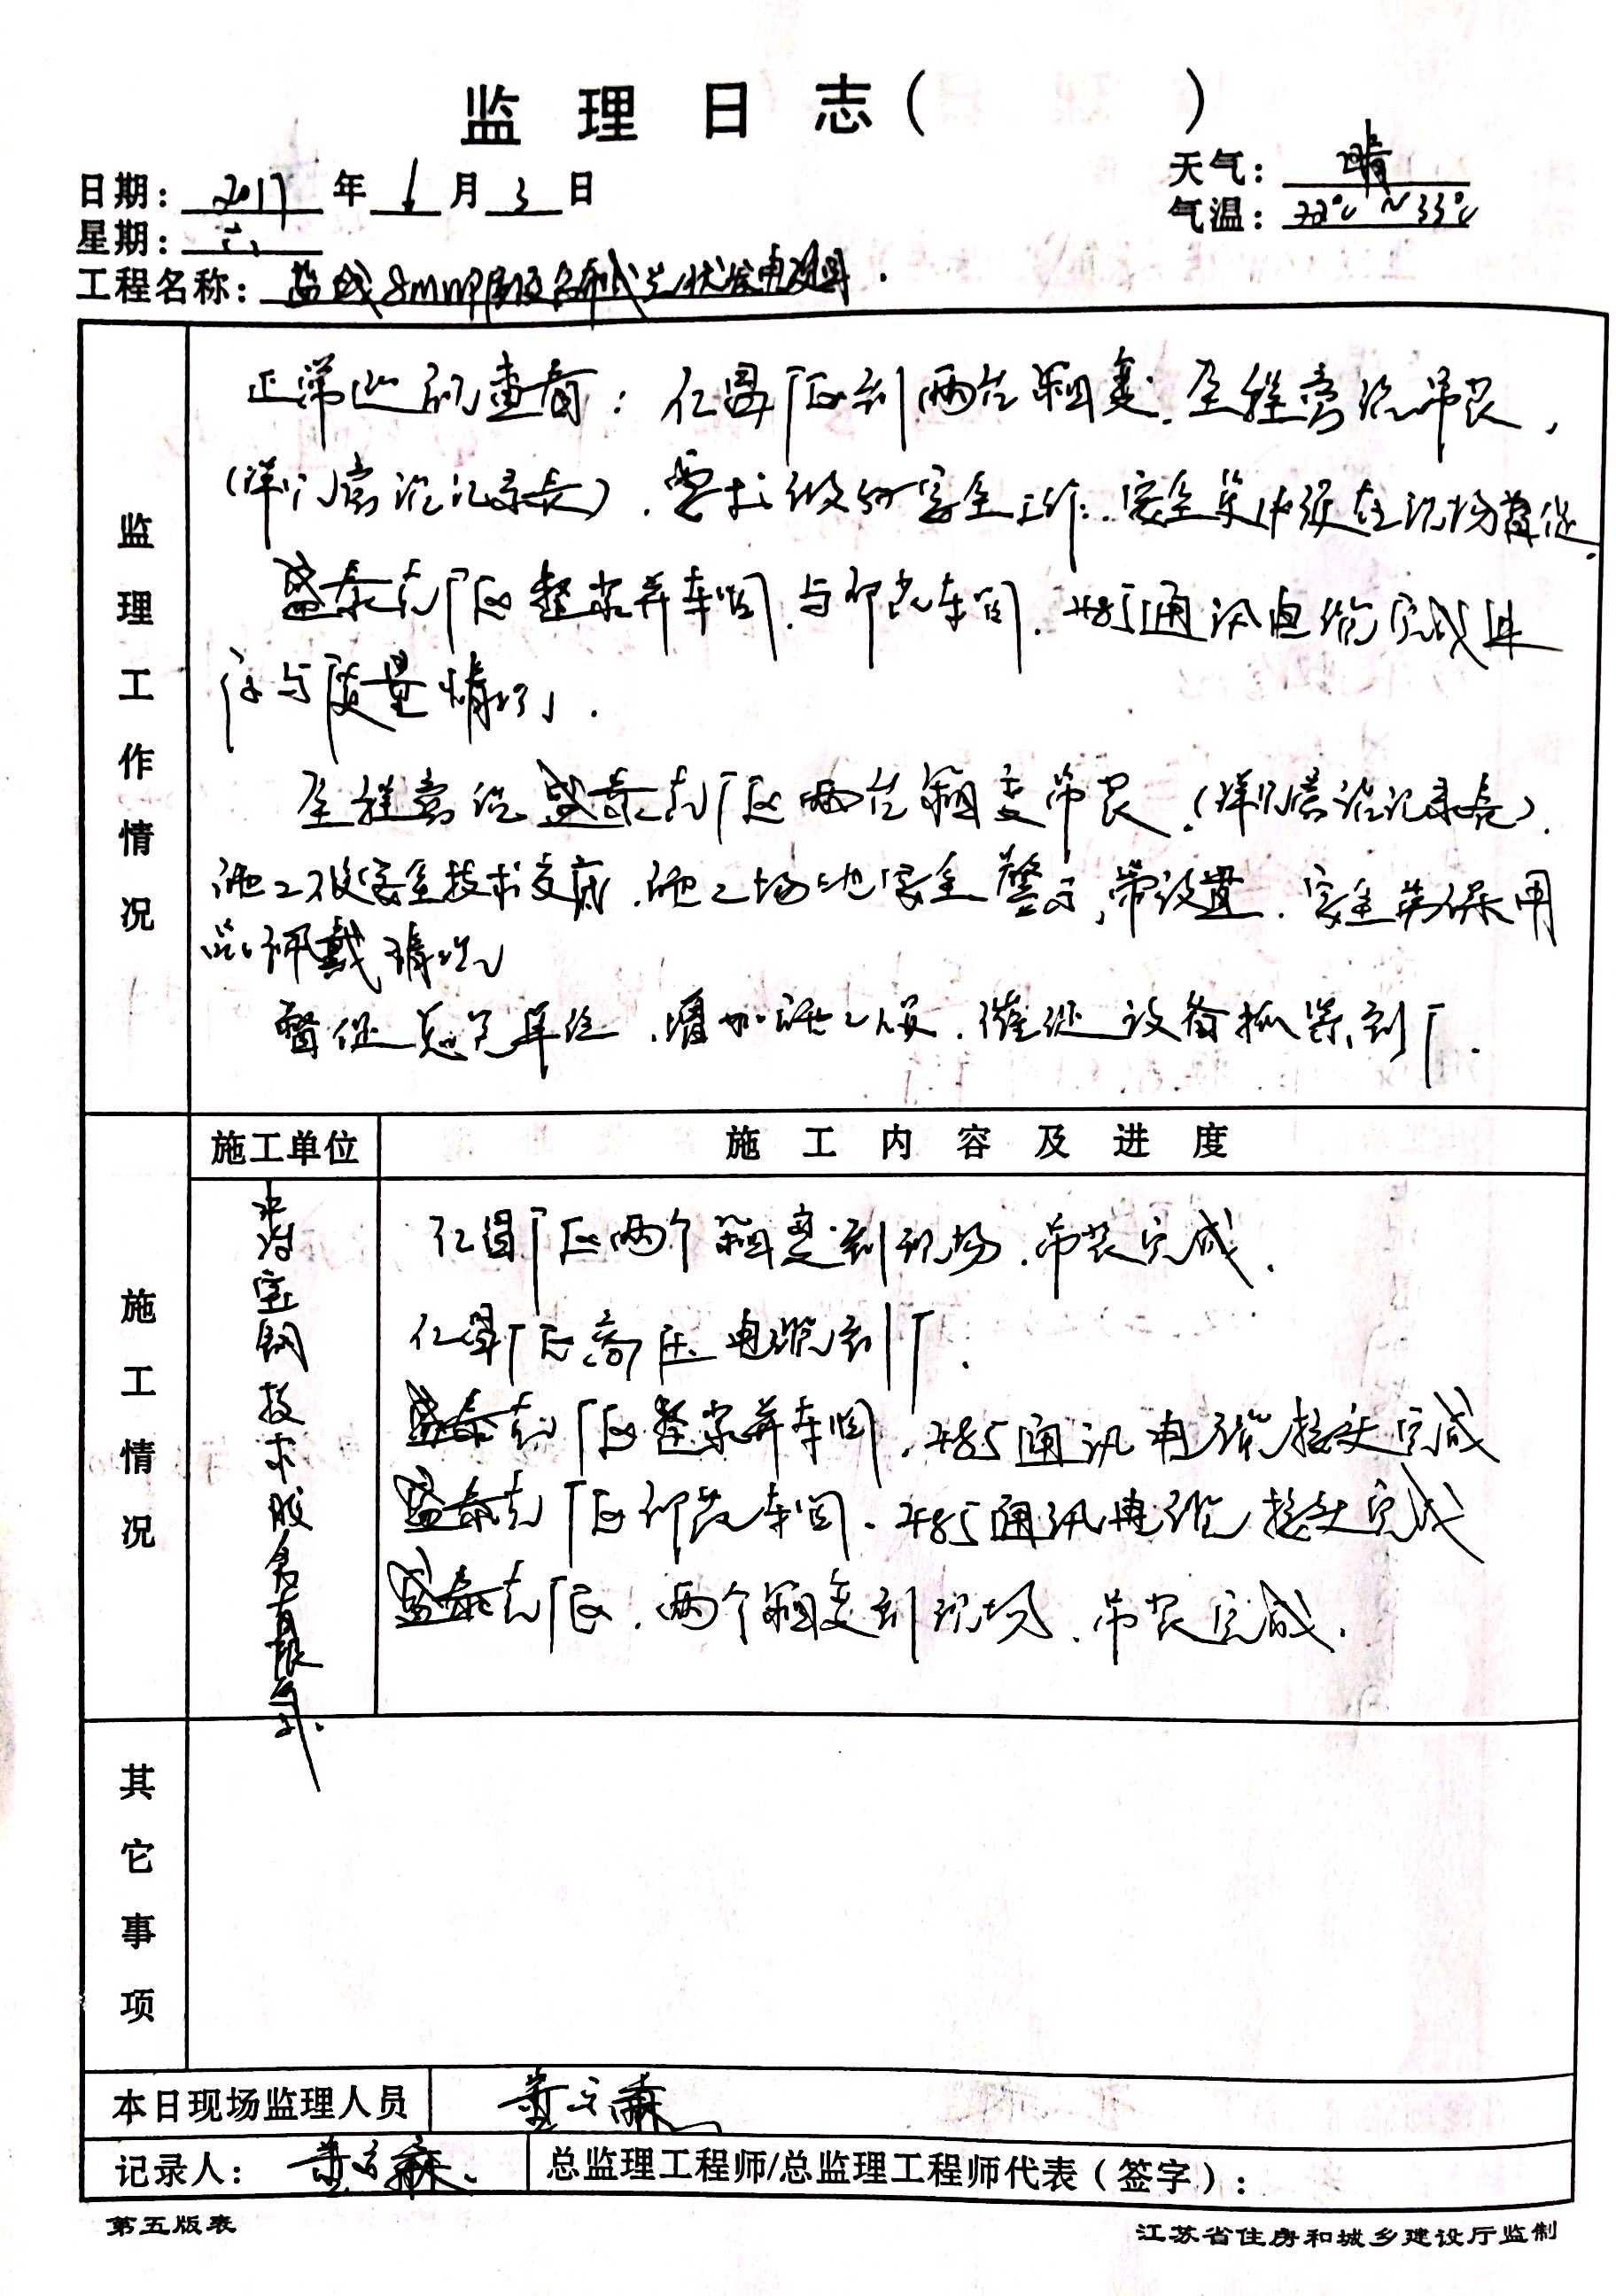 监 理 日 志（ ）
日期：2017 年 6 月 3 日
天气：晴
星期：六
气温：22℃~33℃
工程名称：盐城8MWP屋顶分布式光伏发电项目.
监理工作情况
正常巡视查看：仁昌厂区到两台箱变.全程旁站吊装，
(详见旁站记录表).要求做好安全工作.安全员必须在现场督促.
盛泰克厂区整浆并车间.与印花车间.485通讯电缆完成进
度与质量情况.
全程旁站盛泰克厂区两台箱变吊装.(详见旁站记录表).
施工及安全技术交底.施工场地安全警示带设置.安全劳保用
品佩戴情况
督促总包单位.增加施工人员.催促设备抓紧到厂.
施工单位
施 工 内 容 及 进 度
施工情况
宝钢技术股份有限公司.
仁昌厂区两个箱变到现场.吊装完成.
仁昌厂区高压电缆到厂.
盛泰克厂区整浆并车间.485通讯电缆接头完成
盛泰克厂区印花车间.485通讯电缆接头完成
盛泰克厂区.两个箱变到现场.吊装完成.
其它事项
本日现场监理人员
记录人：
总监理工程师/总监理工程师代表（签字）：
第五版表
江苏省住房和城乡建设厅监制